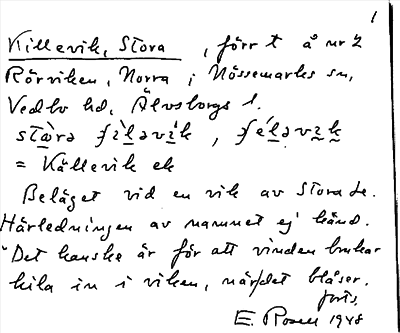 1
Killevik, Stora, förr t å nr 2
Rörviken, Norra i Nössemarks sn,
Vedbo hd, Älvsborgs l.
= Källevik ek
Beläget vid en vik av Stora Le.
Härledningen av namnet ej känd.
"Det kanske är för att vinden brukar
kila in i viken, när det blåser.
forts.
E. Rosell 1948